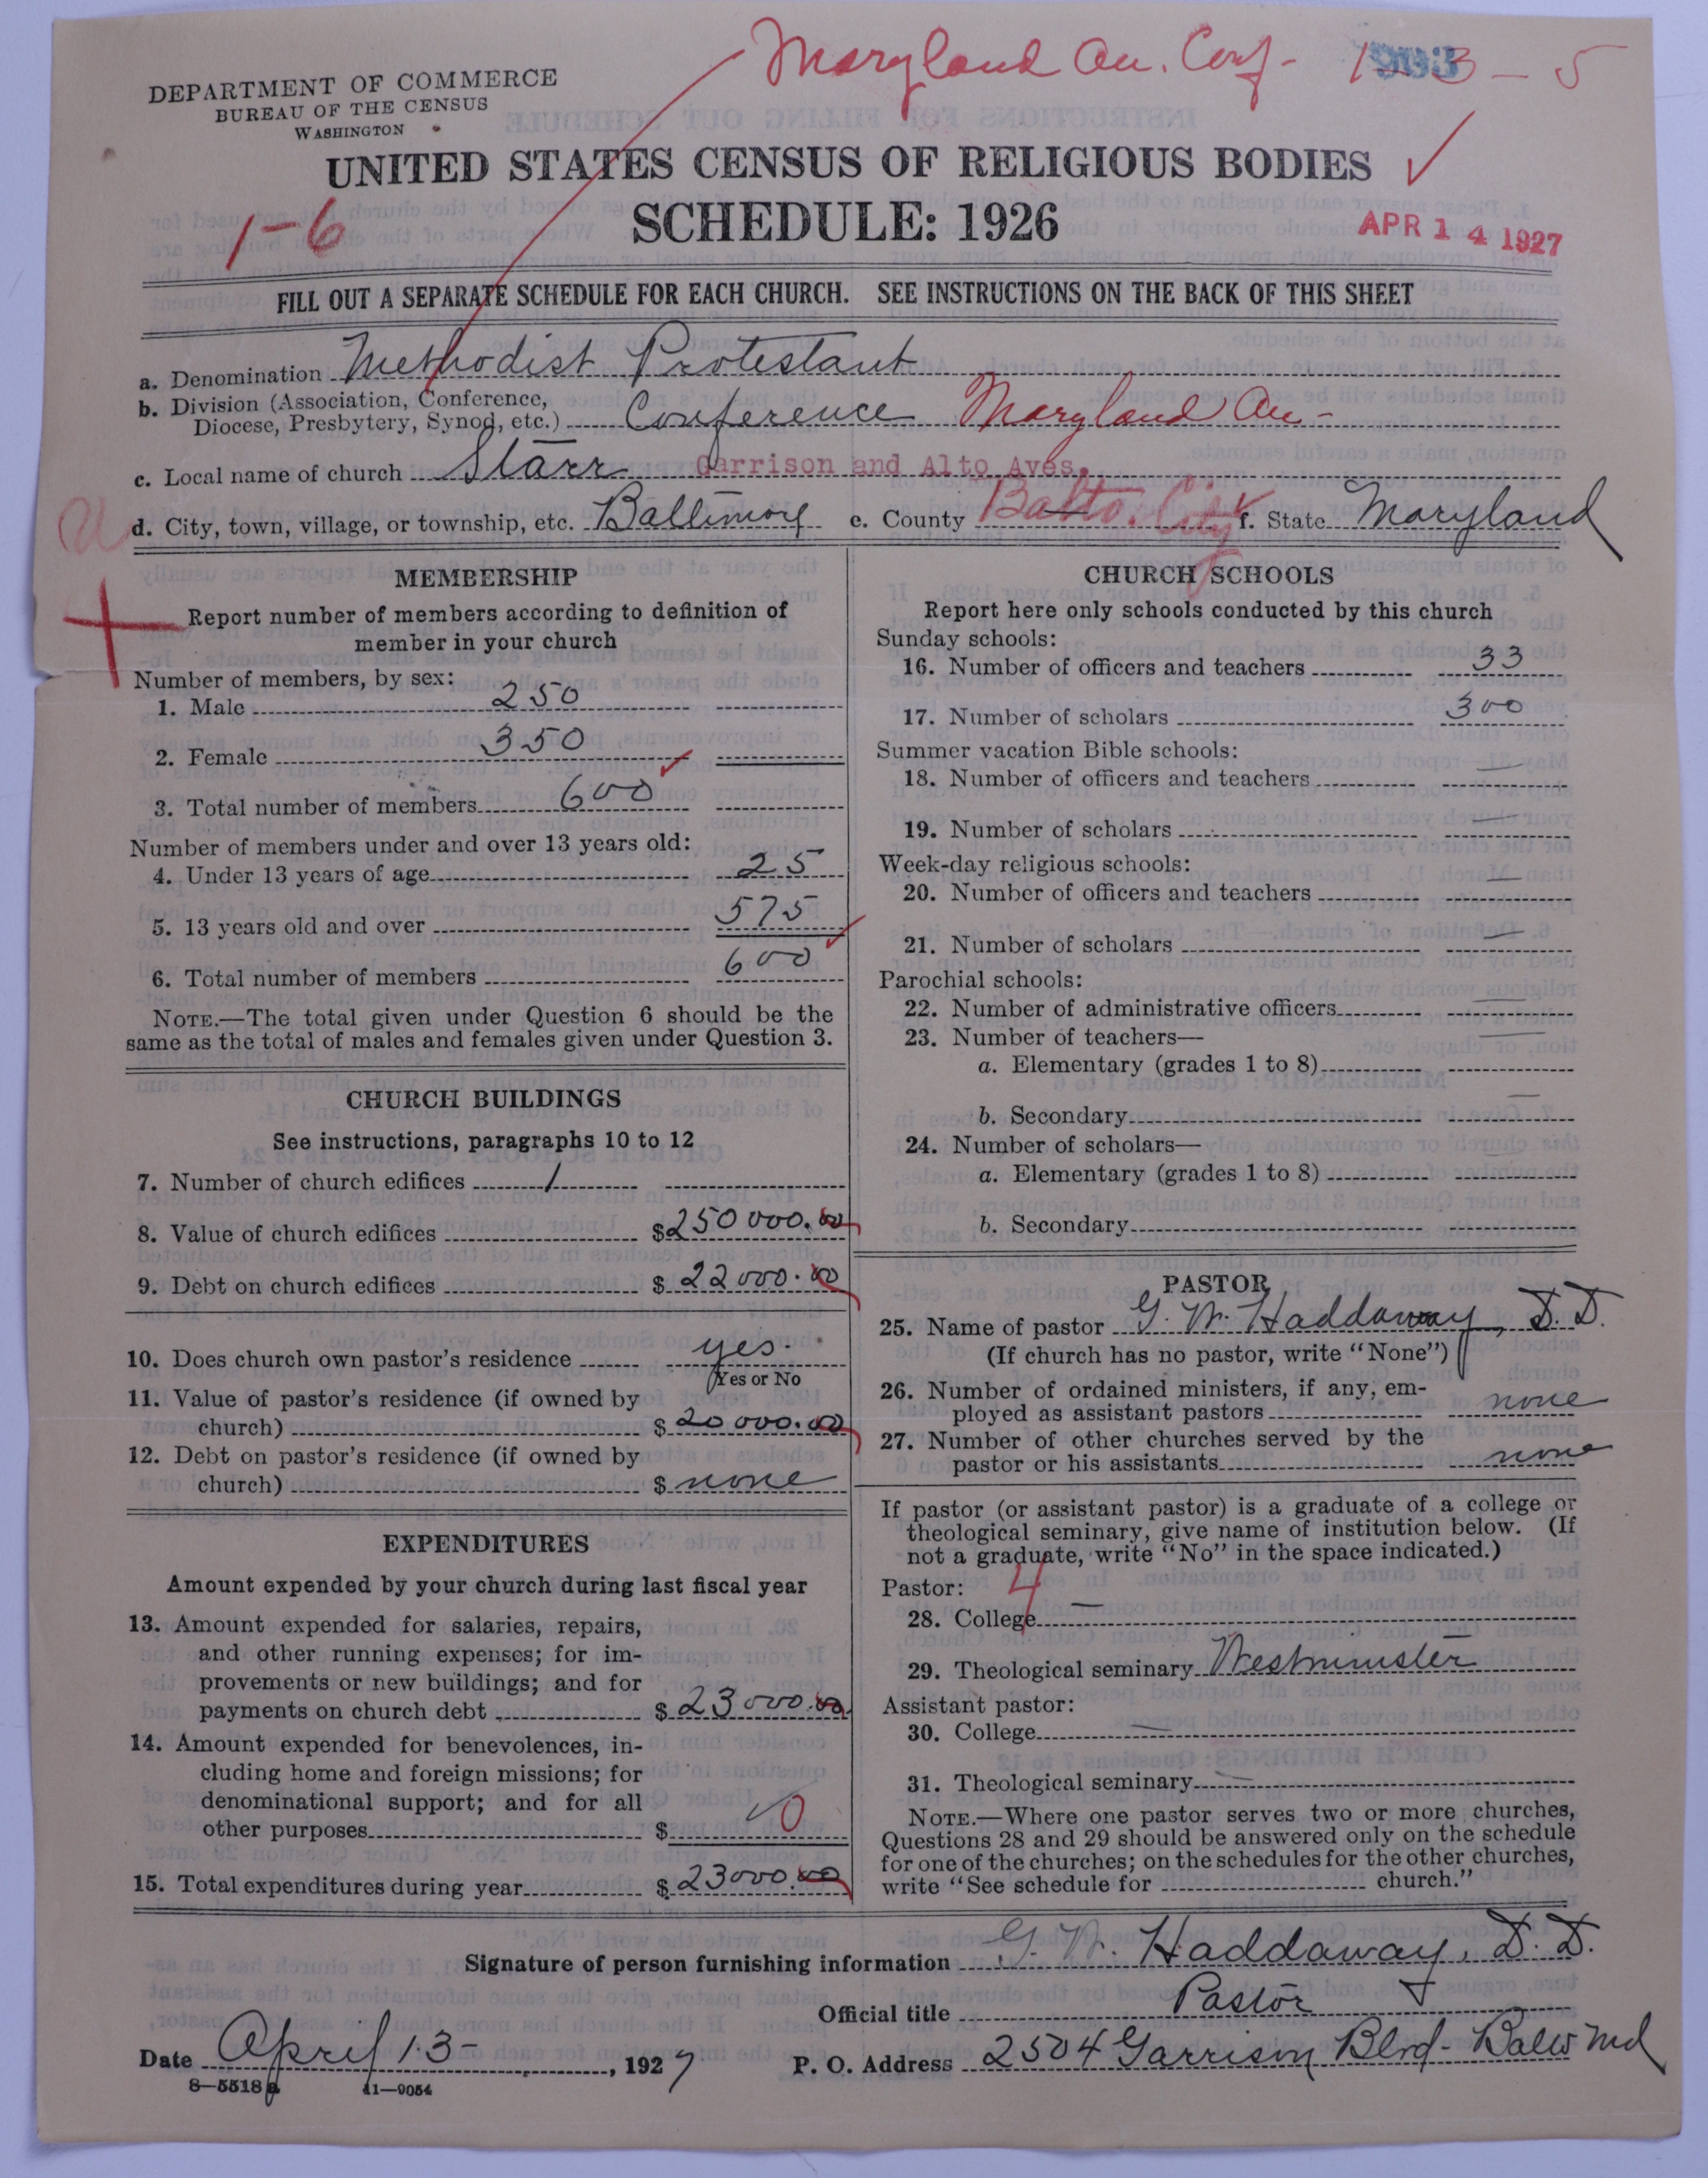 Maryland An. Conf- 
DEPARTMENT OF COMMERCE
BUREAU OF THE CENSUS
WASHINGTON
UNITED STATES CENSUS OF RELIGIOUS BODIES
1-6
SCHEDULE: 1926
APR 14 1927
FILL OUT A SEPARATE SCHEDULE FOR EACH CHURCH. SEE INSTRUCTIONS ON THE BACK OF THIS SHEET
a. Denomination Methodist Protestant
b. Division (Association, Conference,
Diocese, Presbytery, Synod, etc.) Conference Maryland An-
c. Local name of church Starr Garrison and Alto Aves.
d. City, town, village, or township, etc. Baltimore e. County Balto. City f. State Maryland
MEMBERSHIP
Report number of members according to definition of
member in your church
Number of members, by sex:
1. Male 250
2. Female 350
3. Total number of members 600
Number of members under and over 13 years old:
4. Under 13 years of age 25
5. 13 years old and over 575
6. Total number of members 600
NOTE.—The total given under Question 6 should be the
same as the total of males and females given under Question 3.
CHURCH BUILDINGS
See instructions, paragraphs 10 to 12
7. Number of church edifices 1
8. Value of church edifices $250000.00
9. Debt on church edifices $22000.00
10. Does church own pastor's residence yes.
Yes or No
11. Value of pastor's residence (if owned by
church) $20000.00
12. Debt on pastor's residence (if owned by
church) $none
EXPENDITURES
Amount expended by your church during last fiscal year
13. Amount expended for salaries, repairs,
and other running expenses; for im-
provements or new buildings; and for
payments on church debt $23000.00
14. Amount expended for benevolences, in-
cluding home and foreign missions; for
denominational support; and for all
other purposes $ 0
15. Total expenditures during year $23000.00
CHURCH SCHOOLS
Report here only schools conducted by this church
Sunday schools:
16. Number of officers and teachers 33
17. Number of scholars 300
Summer vacation Bible schools:
18. Number of officers and teachers —
19. Number of scholars —
Week-day religious schools:
20. Number of officers and teachers —
21. Number of scholars —
Parochial schools:
22. Number of administrative officers —
23. Number of teachers—
a. Elementary (grades 1 to 8) —
b. Secondary —
24. Number of scholars—
a. Elementary (grades 1 to 8) —
b. Secondary —
PASTOR
25. Name of pastor G. W. Haddaway, D.D.
(If church has no pastor, write "None")
26. Number of ordained ministers, if any, em-
ployed as assistant pastors none
27. Number of other churches served by the
pastor or his assistants none
If pastor (or assistant pastor) is a graduate of a college or
theological seminary, give name of institution below. (If
not a graduate, write "No" in the space indicated.)
Pastor: 4
28. College —
29. Theological seminary Westminster
Assistant pastor:
30. College —
31. Theological seminary —
NOTE.—Where one pastor serves two or more churches,
Questions 28 and 29 should be answered only on the schedule
for one of the churches; on the schedules for the other churches,
write "See schedule for church."
Signature of person furnishing information G. W. Haddaway, D.D.
Official title Pastor
Date April 13-, 1927 P. O. Address 2504 Garrison Blvd- Balto Md
8—5518a 11—9054